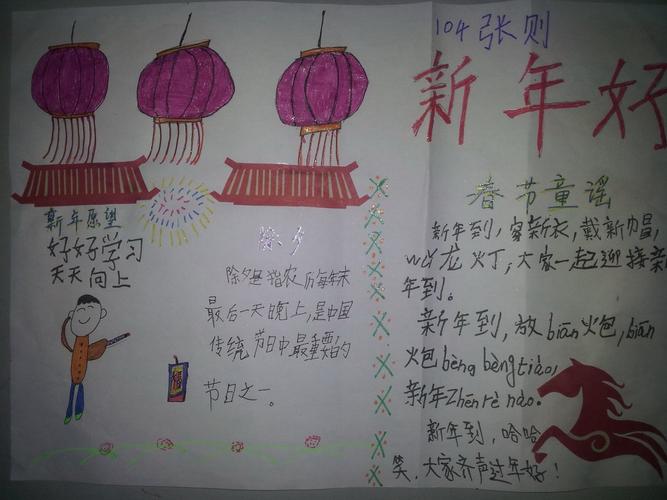 104 张则
新年好
新年愿望
好好学习
天天向上
除夕
除夕是指农历每年末
最后一天晚上，是中国
传统节日中最重要的
节日之一。
春节童谣
新年到，穿新衣，戴新帽，
龙灯，大家一起迎接新
年到。
新年到，放biān炮，biān
炮bèng bèng tiào，
新年Zhēn rè nào。
新年到，哈哈
笑，大家齐声过年好！